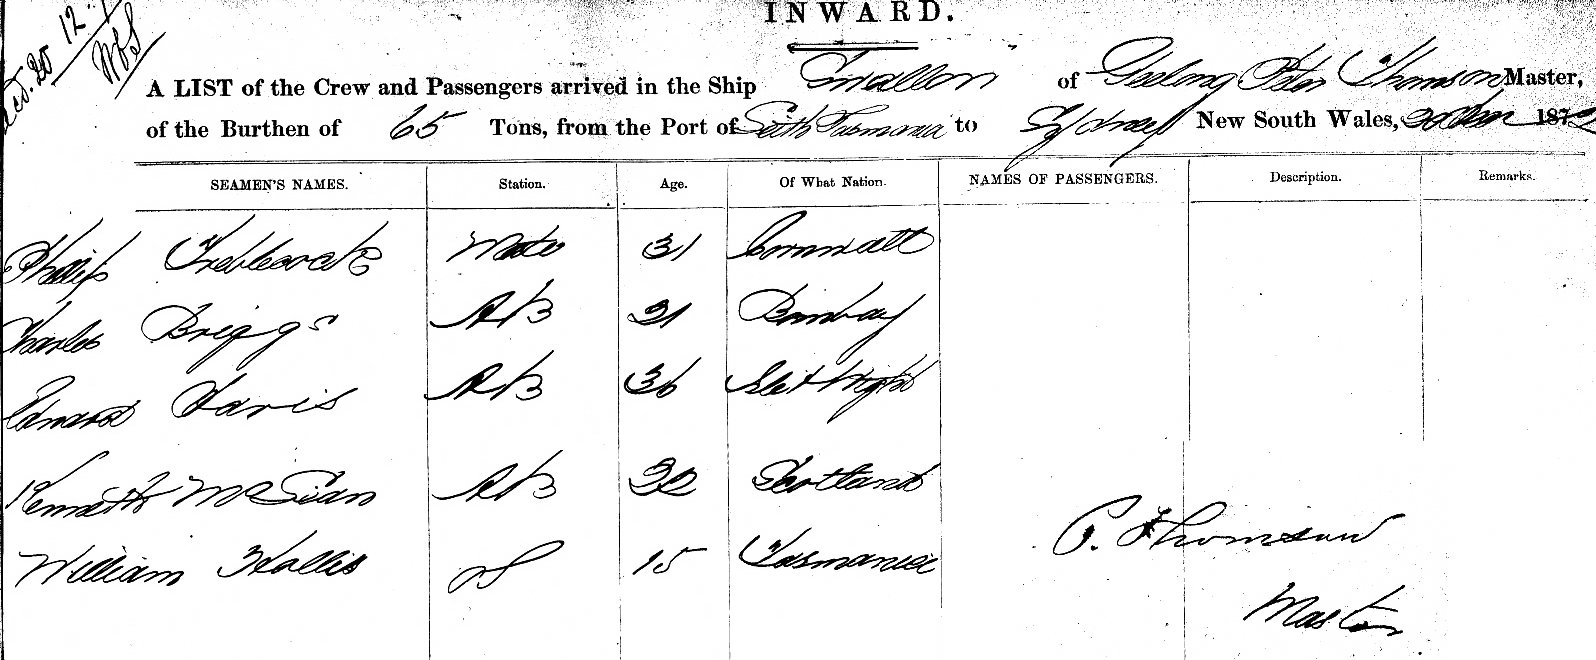 INWARD.
A LIST of the Crew and Passengers arrived in the Ship Swallow of Geelong Peter Thomson Master,
of the Burthen of 65 Tons, from the Port of Tasmania to Sydney New South Wales, 187
SEAMEN'S NAMES. Station. Age. Of What Nation. NAMES OF PASSENGERS. Description. Remarks.
Phillip Treblecock Mate 31 Cornwall
Charles Briggs AB 31 Bombay
Edward Davis AB 36 Wight
Kenneth AB 32 Scotland
William Hollis 15 Tasmania
P. Thomson
Master